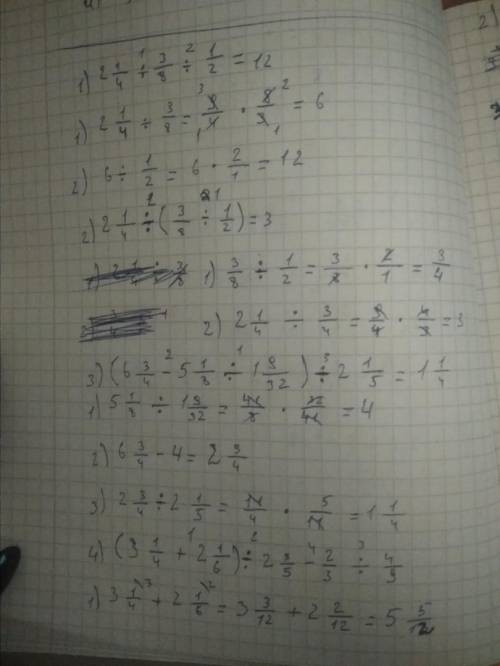 1) 2 1/4 ÷ 3/8 ÷ 1/2 = 12
1) 2 1/4 ÷ 3/8 = 9/4 · 8/3 = 6
2) 6 ÷ 1/2 = 6 · 2/1 = 12
2) 2 1/4 ÷ (3/8 ÷ 1/2) = 3
1) 3/8 ÷ 1/2 = 3/8 · 2/1 = 3/4
2) 2 1/4 ÷ 3/4 = 9/4 · 4/3 = 3
3) (6 3/4 - 5 1/8 ÷ 1 9/32) ÷ 2 1/5 = 1 1/4
1) 5 1/8 ÷ 1 9/32 = 41/8 · 32/41 = 4
2) 6 3/4 - 4 = 2 3/4
3) 2 3/4 ÷ 2 1/5 = 11/4 · 5/11 = 1 1/4
4) (3 1/4 + 2 1/6) ÷ 2 3/5 - 2/3 ÷ 4/9
1) 3 1/4 + 2 1/6 = 3 3/12 + 2 2/12 = 5 5/12
2)